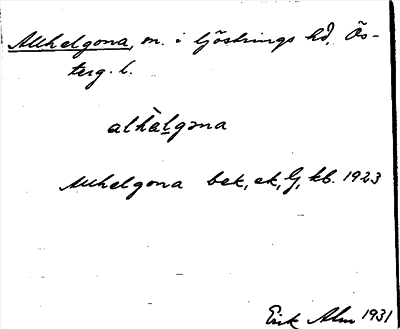 Allhelgona, m. i ljöstrings hd, Ös-
terg. l.
alhàlgəna
Allhelgona bek, ek, G, kb. 1923
Erik Alm 1931